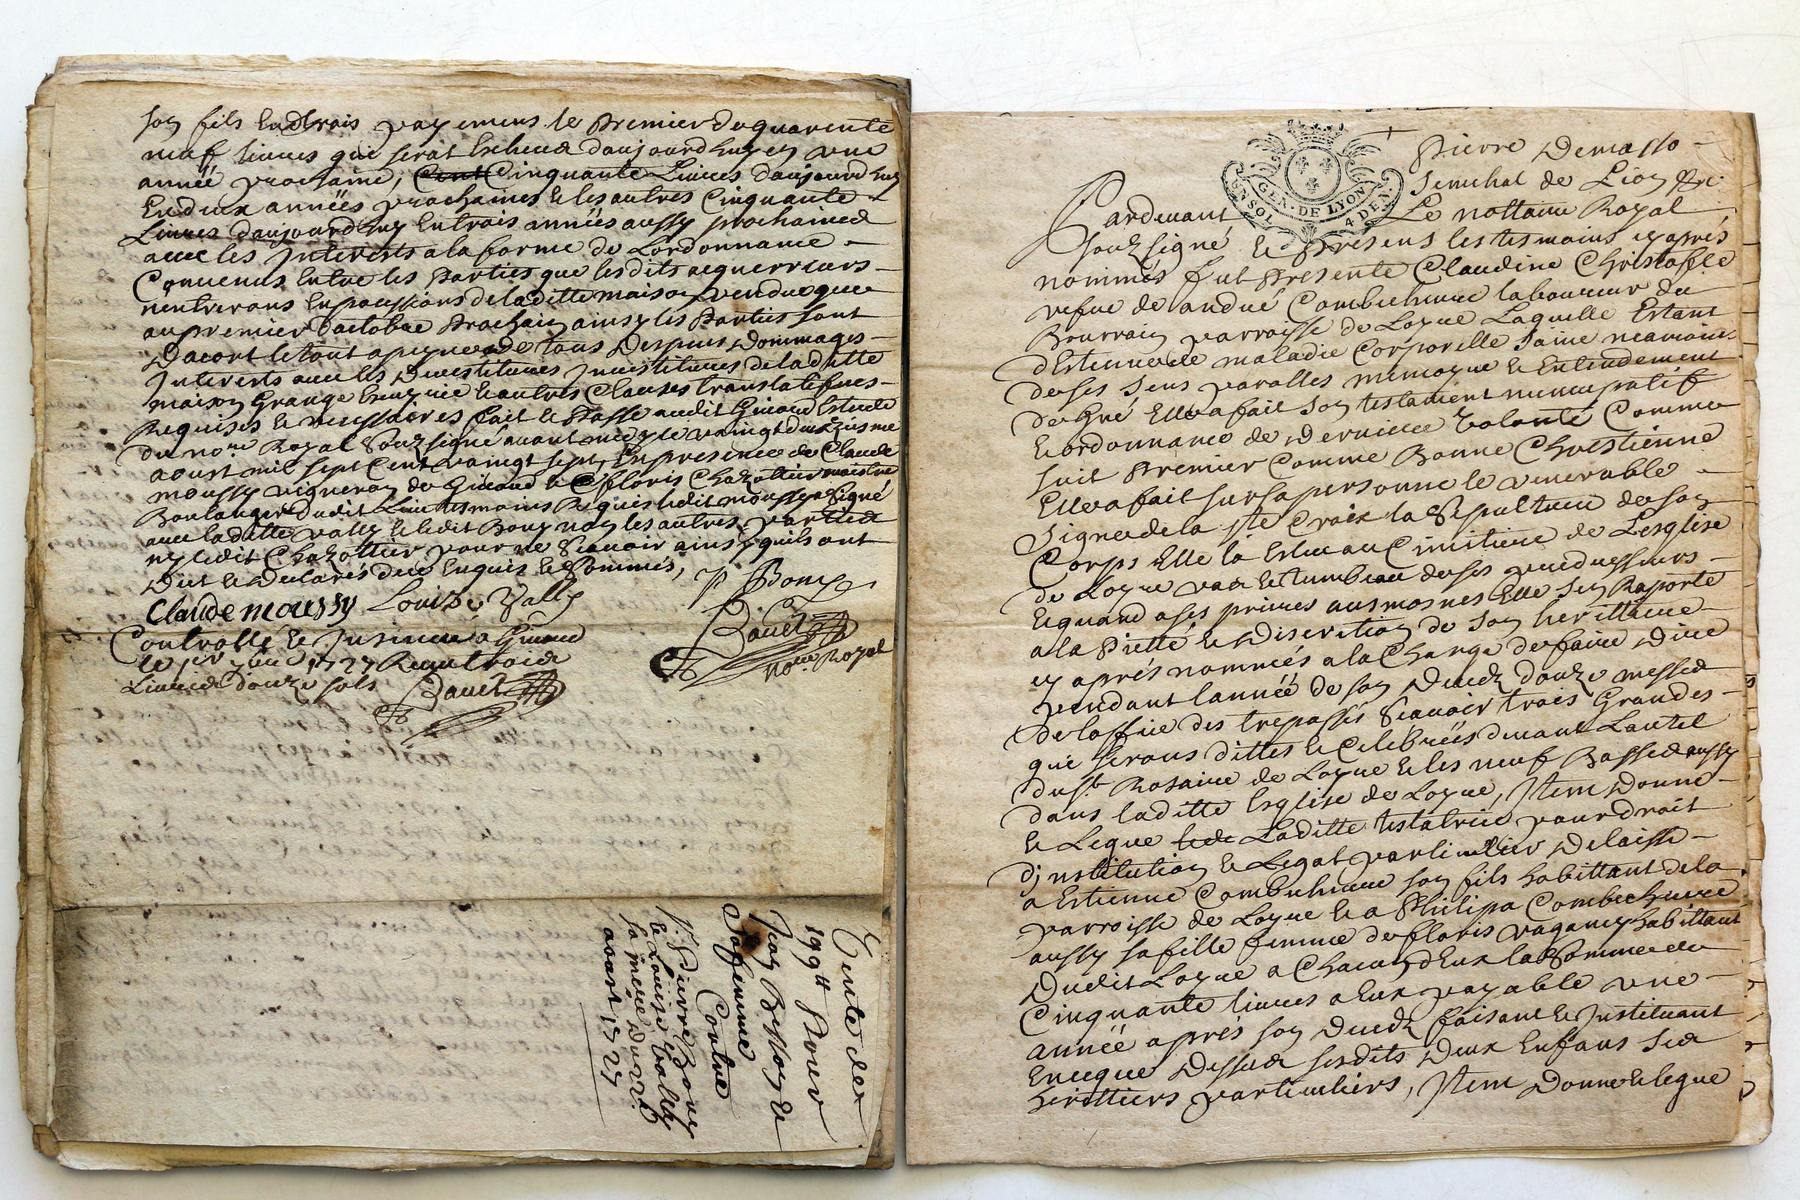 son fils en trois payemens le premier de quarente
neuf livres qui serat escheut daujourdhuy en une
année prochaine, cent cinquante livres daujourdhuy
en deux années prochaines et les autres cinquante
livres daujourdhuy en trois années aussy prochaines
avec les interests a la forme de lordonnance
convenus entre les parties que lesdits acquerreurs
rentrerons en pocessions de laditte maison vendue que
au premier doctobre prochain ainsy les parties sont
dacort le tout a peyne de tous despens dommages
interests avec les devestitures investitures de laditte
maison grange et autres clauses translatifves
requises et necessaires fait et passé audit Givord estude
du no.re Royal souzsigné avant midy le vaingt deuxzieme
aoust mil sept cent vaingt sept, en presence de Claude
moussy vigneron de Givord et Floris Chazottier maistre
Boulanger dudit lieu tesmoins requis ledit moussy a signé
avec laditte vally et ledit Bony non les autres parties
ny ledit Chazottier pour ne scavoir ainsy quils ont
dit et declarés de ce enquis et sommés,
P Bony
Claude moussy Louise Vally
Controllé et insinué à Givord
le 1er 1727 Receu trois
livres douze sols
no.re Royal
Vente de
199tt pour
Jean Besson et
sa femme
Contre
Sr. Pierre Bony
et Louise vally
sa mère du 22
aoust 1727
GEN. DE LYON
UN SOL 4 DEN.
Pierre Demasso
senechal de Lion
Pardevant Le nottaire Royal
souzsigné et presens les tesmoins cy aprés
nommés fut presente Claudine Christofle
vefve de andré Combechurre laboureur du
Bourrain parroisse de Loyre Laquelle estant
detenue de maladie corporelle saine neamoins
de ses sens parolles memoyre et entendement
de gré elle a fait son testament nuncupatif
et ordonnance de derniere volonté comme
suit premier comme Bonne Chrestienne
elle a fait sur sa personne le venerable
signe de la ste Croix la sepulture de son
corps elle la esleu au cimitiere de Lesglise
de Loyre
et quand a ses prieres ausmosnes elle sen raporte
a la pietté et discretion de son herittiere
cy aprés nommés a la charge de faire dire
pendant lannée de son decedz douze messes
de loffice des trepassés scavoir trois Grandes
qui serons dittes et celebrées devant Lautel
du st. Rosaire de Loyre et les neuf Basses aussy
dans laditte Esglise de Loyre, Item donne
et legue Laditte testatrice pour droit
dinstitution et legat particulier delaisse
a Estienne Combechurre son fils habittant de la
parroisse de Loyre et a Philipa Combechurre
aussy sa fille femme de floris vaganay habittant
dudit Loyre a chacun deux la somme de
cinquante livres a eux payable une
année aprés son decedz faisant et instituant
en ce que dessus sesdits deux enfans ses
herittiers particuliers, Item donne et legue